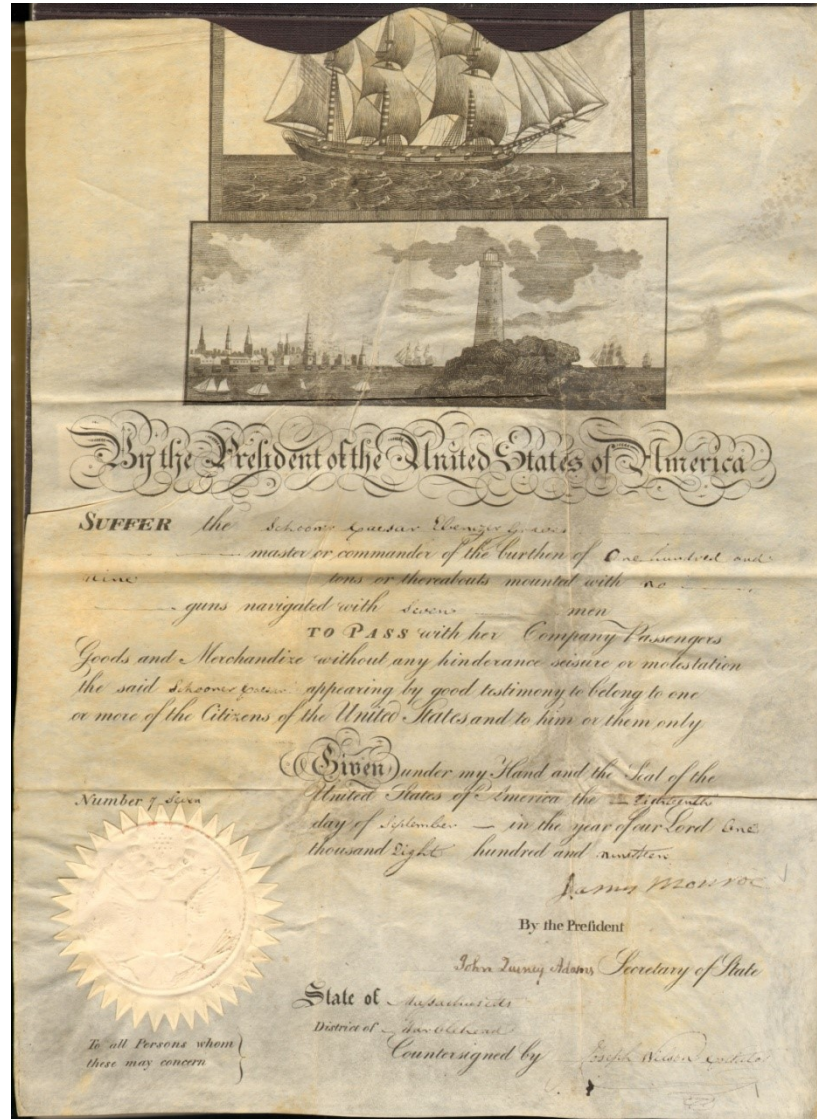 By the President of the United States of America
SUFFER the Schooner Caesar Ebenezer Graves
master or commander of the burthen of One hundred and
nine tons or thereabouts mounted with no
guns navigated with Seven men
TO PASS with her Company Passengers
Goods and Merchandize without any hinderance seisure or molestation
the said Schooner Caesar appearing by good testimony to belong to one
or more of the Citizens of the United States and to him or them only
Given under my Hand and the Seal of the
United States of America the Eighteenth
Number 7 Seven
day of September in the year of our Lord One
thousand Eight hundred and nineteen
James Monroe
By the President
John Quincy Adams Secretary of State
State of Massachusetts
District of Marblehead
To all Persons whom
these may concern
Countersigned by Joseph Wilson